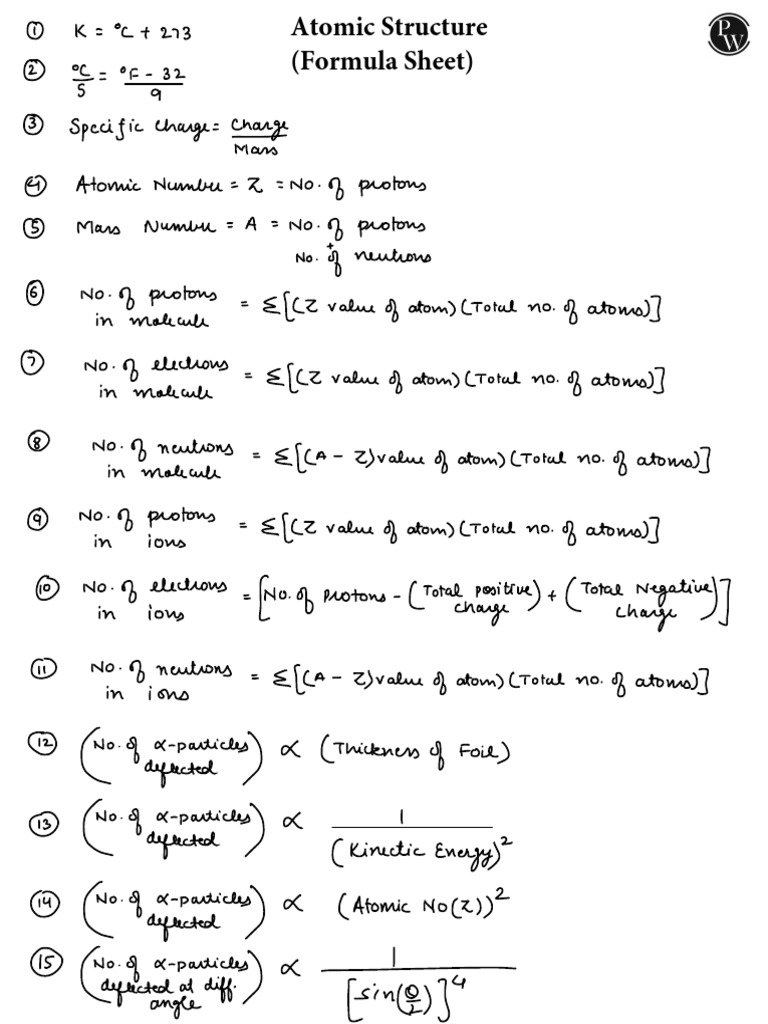 Atomic Structure
(Formula Sheet)
PW
① K = °C + 273
② °C/5 = °F - 32/9
③ Specific charge = Charge/Mass
④ Atomic Number = Z = No. of protons
⑤ Mass Number = A = No. of protons
+
No. of neutrons
⑥ No. of protons in molecule = Σ[(Z value of atom)(Total no. of atoms)]
⑦ No. of electrons in molecule = Σ[(Z value of atom)(Total no. of atoms)]
⑧ No. of neutrons in molecule = Σ[(A - Z)value of atom)(Total no. of atoms)]
⑨ No. of protons in ions = Σ[(Z value of atom)(Total no. of atoms)]
⑩ No. of electrons in ions = [No. of Protons - (Total positive charge) + (Total Negative charge)]
⑪ No. of neutrons in ions = Σ[(A - Z)value of atom)(Total no. of atoms)]
⑫ (No. of α-particles deflected) ∝ (Thickness of Foil)
⑬ (No. of α-particles deflected) ∝ 1/(Kinectic Energy)²
⑭ (No. of α-particles deflected) ∝ (Atomic No(Z))²
⑮ (No. of α-particles deflected at diff. angle) ∝ 1/[sin(θ/2)]⁴